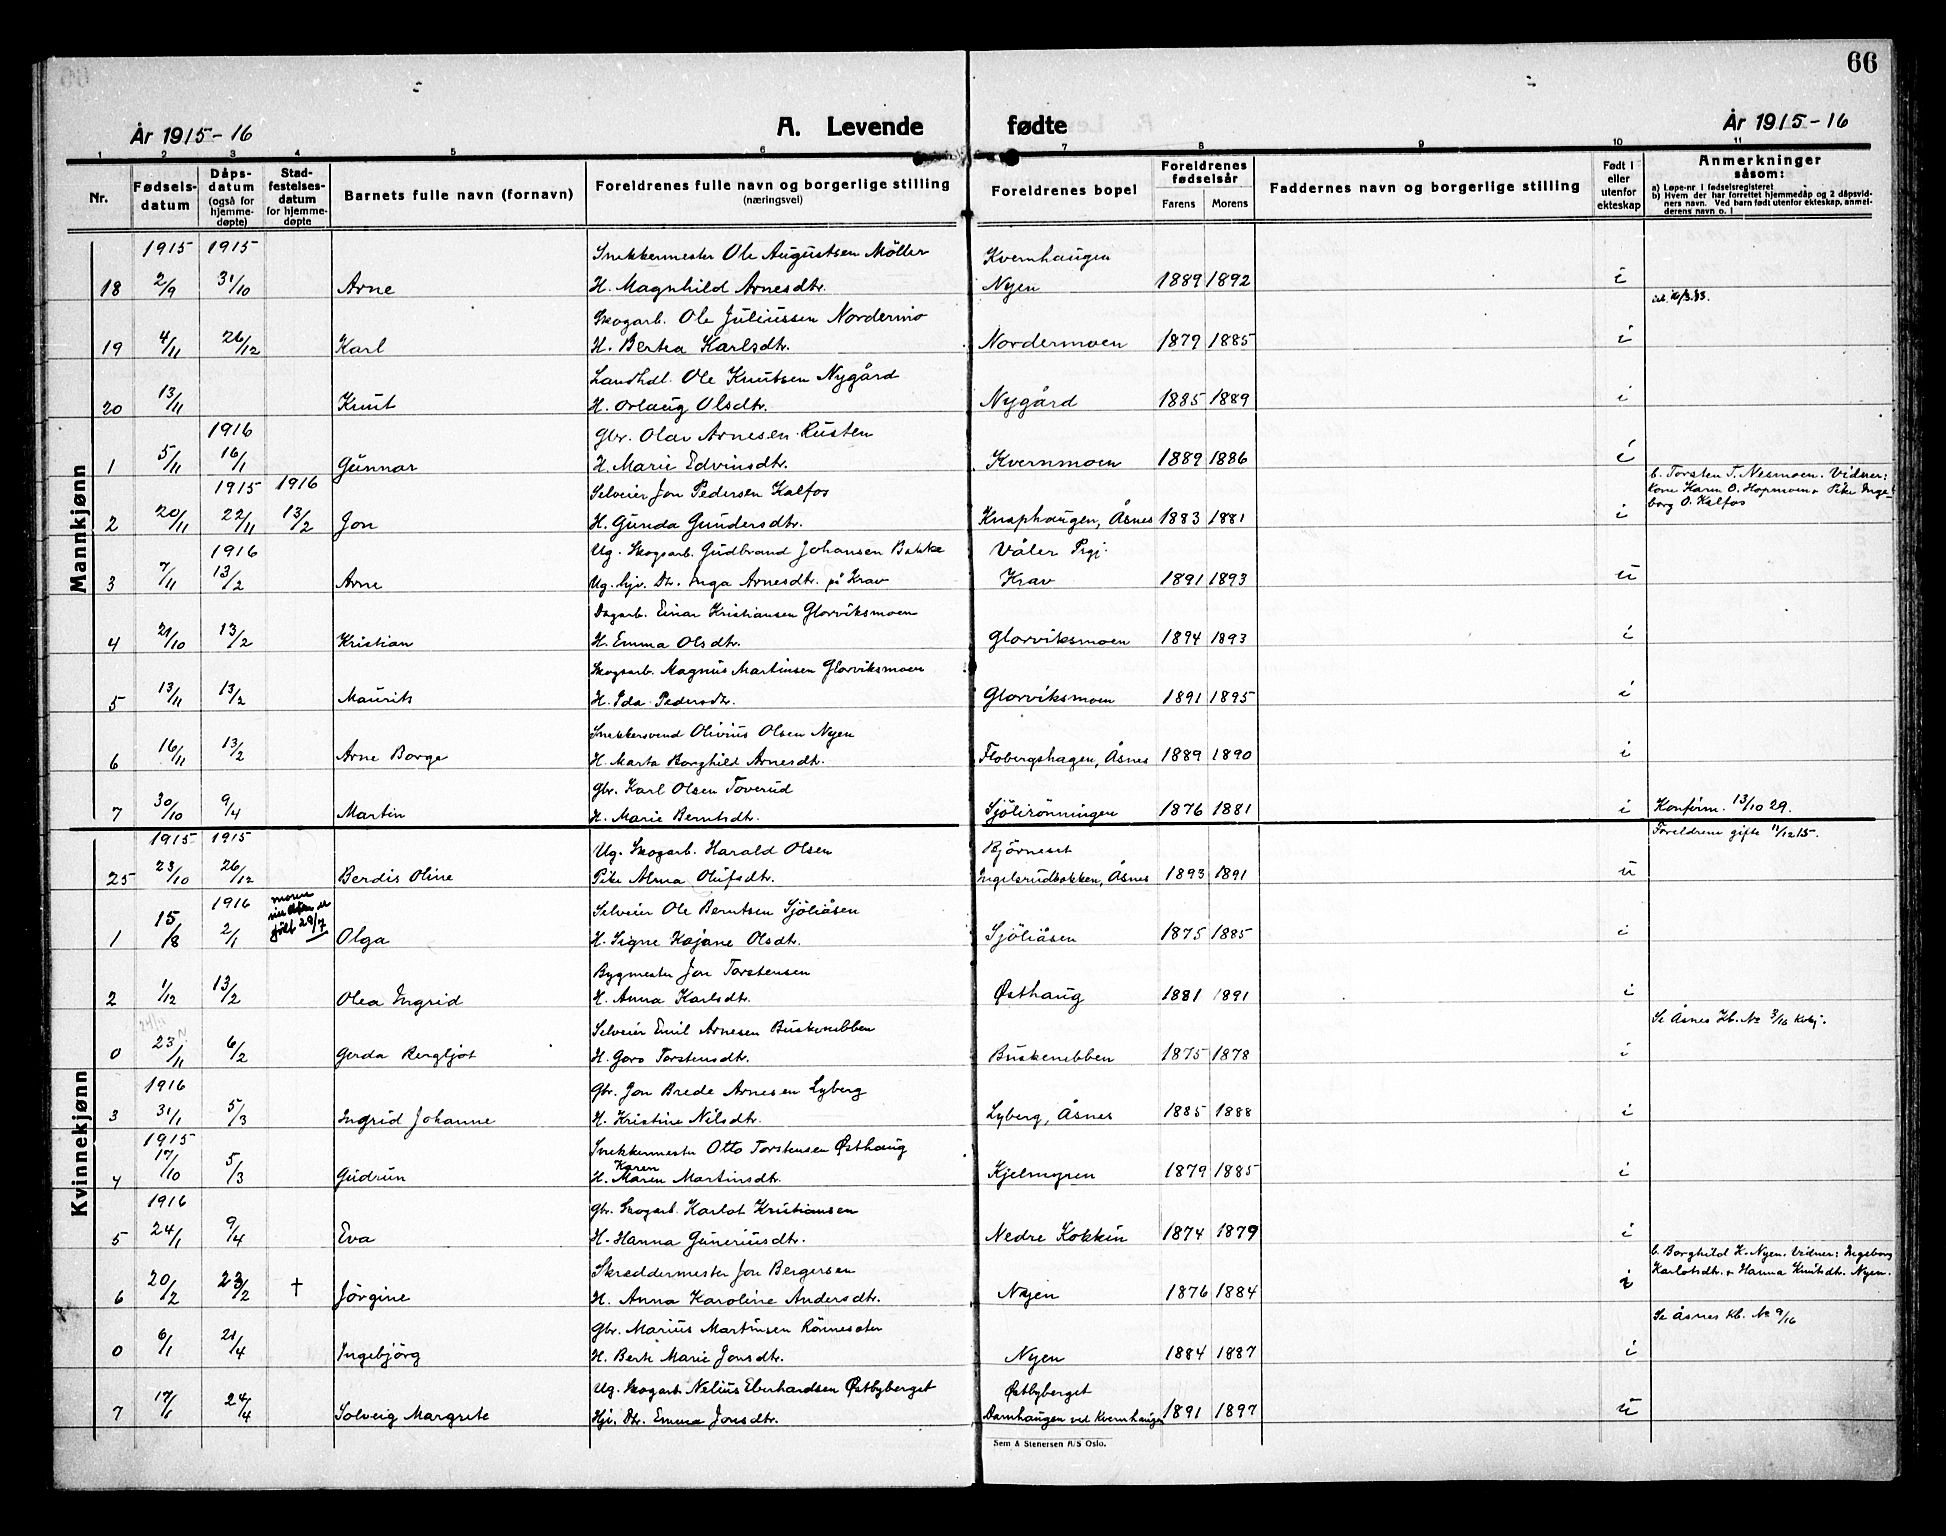 66
År 1915-16 A. Levende fødte År 1915-16
1 2 3 4 5 6 7 8 9 10 11
Nr. Fødselsdatum Dåpsdatum (også for hjemmedøpte) Stadfestelsesdatum for hjemmedøpte Barnets fulle navn (fornavn) Foreldrenes fulle navn og borgerlige stilling (næringsvei) Foreldrenes bopel Foreldrenes fødselsår Farens Morens Faddernes navn og borgerlige stilling Født i eller utenfor ekteskap Anmerkninger såsom:
a) Løpe-nr. i fødselsregisteret
b) Hvem der har forrettet hjemmedåp og 2 dåpsvidners navn. Ved barn født utenfor ekteskap, anmelderens navn o. l
Mannkjønn
1915 1915 Snekkermester Ole Augustsen Møller Kvernhaugen
18 2/9 31/10 Arne H. Magnhild Arnesdtr. Nyen 1889 1892 i
Skogarb. Ole Juliussen Nordermo
19 4/11 26/12 Karl H. Bertea Karlsdtr. Nordermoen 1879 1885 i
Landhdl. Ole Knutsen Nygård
20 13/11 Knut H. Orlaug Olsdtr. Nygård 1885 1889 i
1916 Gbr. Olav Arnesen Rusten
1 5/11 16/1 Gunnar H. Marie Edvinsdtr. Kvernmoen 1889 1886 i
1915 1916 Selveier Jon Pedersen Kalfos b. Torsten T. Nesmoen. Vidner:
Kone Karen O. Hopmoen + Pike Inge-
2 20/11 22/11 13/2 Jon H. Gunda Gundersdtr. Knaphaugen, Åsnes 1883 1881 i borg O. Kalfos
1916 Ug. Skogsarb. Gudbrand Johansen Bakke Våler Prgj.
3 7/11 13/2 Arne Ug. hjv. Dtr. Inga Arnesdtr. på Krav Krav 1891 1893 u
Dagarb. Einar Kristiansen Glorviksmoen
4 21/10 13/2 Kristian H. Emma Olsdtr. Glorviksmoen 1894 1893 i
Skogsarb. Magnus Martinsen Glorviksmoen
5 13/11 13/2 Maurits H. Ida Pedersdtr. Glorviksmoen 1891 1895 i
Snekkersvend Olivius Olsen Nyen
6 16/11 13/2 Arne Borge H. Marta Borghild Arnesdtr. Flobergshagen, Åsnes 1889 1890 i
Gbr. Karl Olsen Toverud
7 30/10 9/4 Martin H. Marie Berntsdtr. Sjölirönningen 1876 1881 i Konfirm. 13/10 29.
Kvinnekjønn
1915 1915 Ug. Skogarb. Harald Olsen Björneset Foreldrene gifte 11/12 15.
25 23/10 26/12 Berdis Oline Pike Alma Olufsdtr. Ingelsrudbakken, Åsnes 1893 1891 u
1916 Selveier Ole Berntsen Sjöliåsen
1 15/8 2/1 født 29/7 Olga H. Signe Kajane Olsdtr. Sjöliåsen 1875 1885 i
Bygmester Jon Torstensen
2 1/12 13/2 Olea Ingrid H. Anna Karlsdtr. Østhaug 1881 1891 i
24/11 Selveier Emil Arnesen Buskenebben Se Åsnes Kb. No 3/16 Kvkj.
0 23/11 6/2 Gerda Bergljot H. Goro Torstensdtr. Buskenebben 1875 1878 i
1916 Gbr. Jon Brede Arnesen Lyberg
3 31/1 5/3 Ingrid Johanne H. Kristine Nilsdtr. Lyberg, Åsnes 1885 1888 i
1915 Snekkermester Otto Torstensen Østhaug
Karen
4 17/10 5/3 Gudrun H. Maren Martinsdtr. Kjelmyren 1879 1885 i
1916 Gbr. Skogarb. Karlot Kristiansen
5 24/1 9/4 Eva H. Hanna Guneriusdtr. Nedre Kokkin 1874 1879 i
Skreddermester Jon Bergersen b. Borghild K. Nyen. Vidner: Ingeborg
Karlotsdtr. + Hanna Knutsdtr. Nyen.
6 20/2 23/2 † Jörgine H. Anna Karoline Andersdtr. Nyen 1876 1884 i
Gbr. Marius Martinsen Rönneseter Se Åsnes Kb. No 9/16
0 6/1 21/4 Ingebjörg H. Berte Marie Jonsdtr. Nyen 1884 1887 i
Ug. Skogarb. Nelius Eberhardsen Østbyberget Østbyberget
7 17/1 24/4 Solveig Margrete Hjv. Dtr. Emma Jonsdtr. Damhaugen ved Kvernhaugen 1891 1897 u
Sem & Stenersen A/S Oslo.